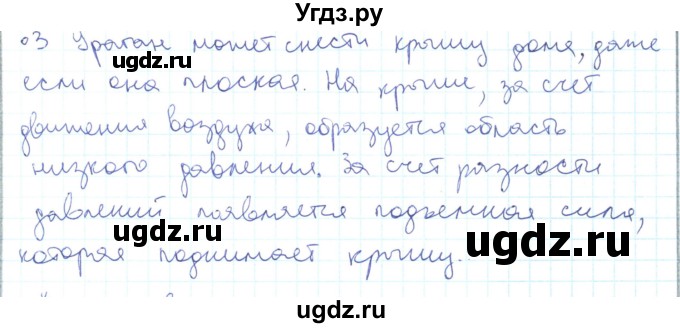 Угдз.ру
°3 Ураган может снести крышу дома, даже
если она плоская. На крыше, за счет
движения воздуха, образуется область
низкого давления. За счет разности
давлений появляется подъемная сила,
которая поднимает крышу.
ugdz.ru ugdz.ru
ugdz.ru